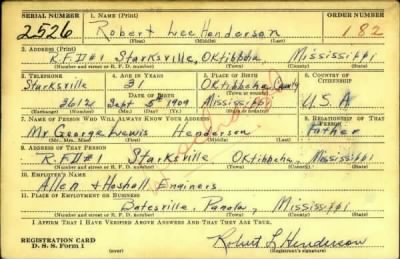 SERIAL NUMBER 1. NAME (Print) ORDER NUMBER
2526 Robert Lee Henderson 182
(First) (Middle) (Last)
2. ADDRESS (Print)
R.F.D#1 Starksville, Oktibbeha, Mississippi
(Number and street or R. F. D. number) (Town) (County) (State)
3. TELEPHONE 4. AGE IN YEARS 5. PLACE OF BIRTH 6. COUNTRY OF CITIZENSHIP
Starksville 31 Oktibbeha County
DATE OF BIRTH (Town or county)
361 Sept 5th 1909 Mississippi U.S.A
(Exchange) (Number) (Mo.) (Day) (Yr.) (State or country)
7. NAME OF PERSON WHO WILL ALWAYS KNOW YOUR ADDRESS 8. RELATIONSHIP OF THAT PERSON
Mr George Lewis Henderson Father
(Mr., Mrs., Miss) (First) (Middle) (Last)
9. ADDRESS OF THAT PERSON
R.F.D#1 Starksville, Oktibbeha, Mississippi
(Number and street or R. F. D. number) (Town) (County) (State)
10. EMPLOYER'S NAME
Allen & Hoshall Enginers
11. PLACE OF EMPLOYMENT OR BUSINESS
Batesville, Panola, Mississippi
(Number and street or R. F. D. number) (Town) (County) (State)
I AFFIRM THAT I HAVE VERIFIED ABOVE ANSWERS AND THAT THEY ARE TRUE.
REGISTRATION CARD
D. S. S. Form 1 Robert L Henderson
(Registrant's signature)